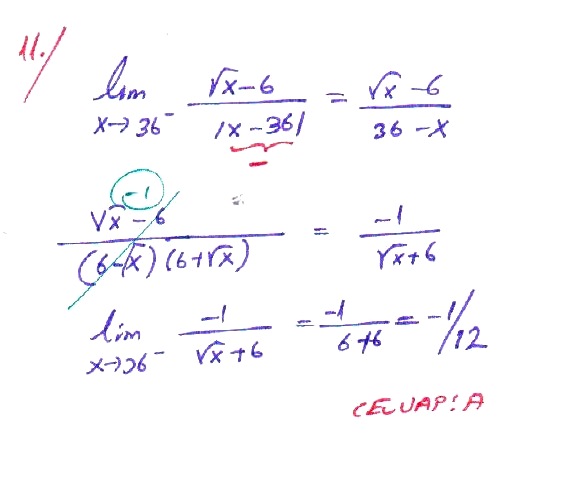 11./
lim x→36⁻ (√x-6)/|x-36| = (√x-6)/(36-x)
-
-1
(√x-6)/((6-√x)(6+√x)) = -1/(√x+6)
lim x→36⁻ -1/(√x+6) = -1/(6+6) = -1/12
CEVAP:A